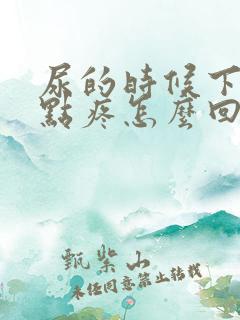 尿的時候下
點疼怎麼回
甄紫山
未经同意禁止转载